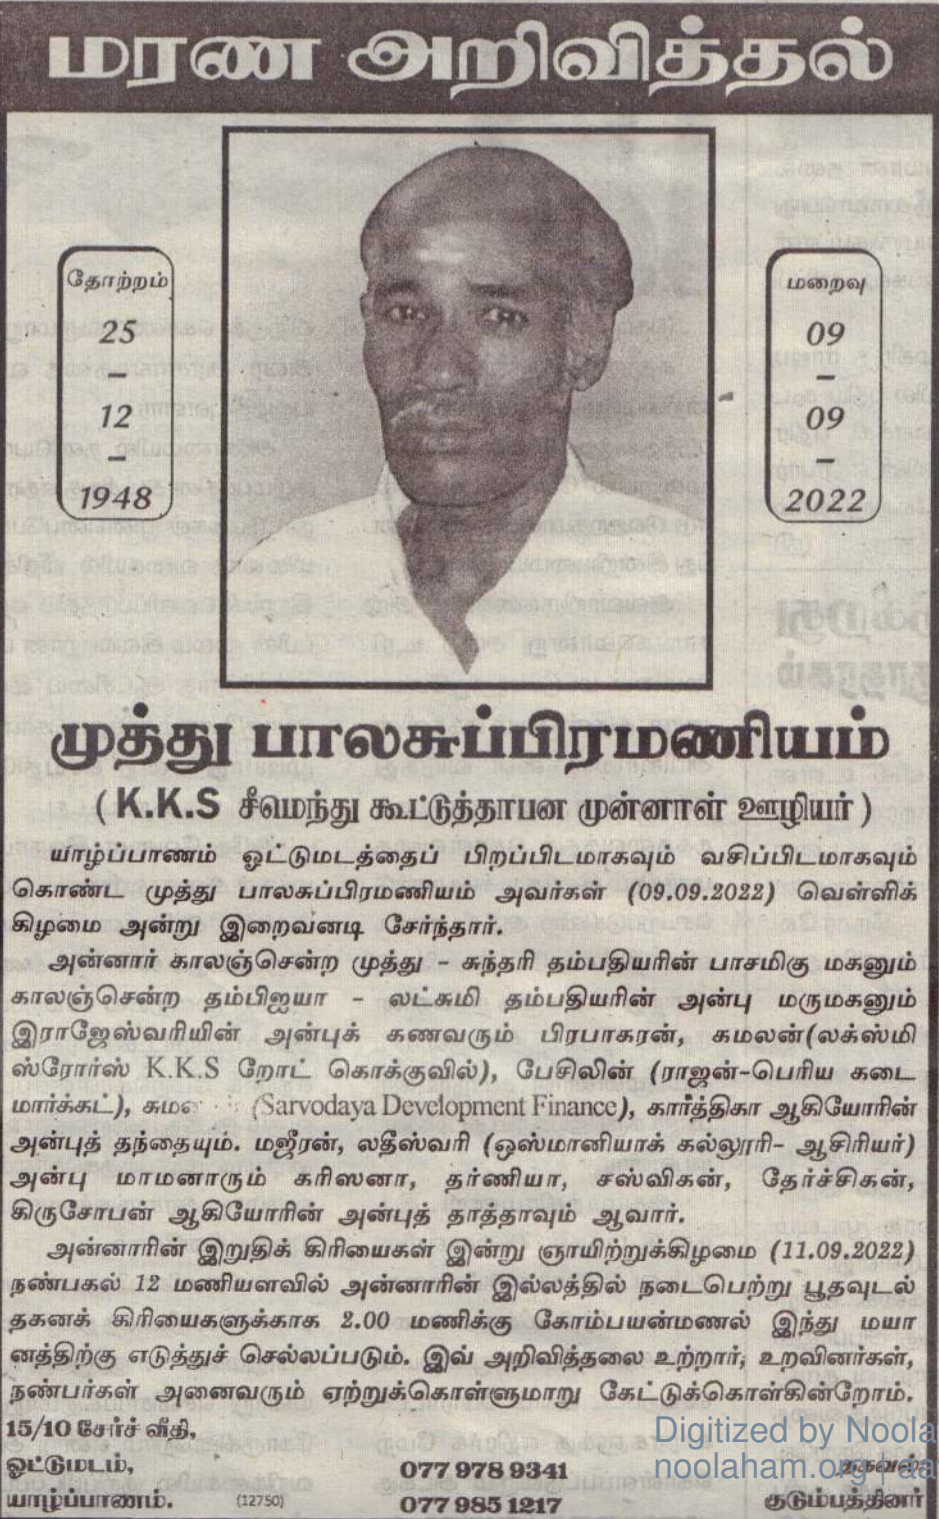 மரண அறிவித்தல்
தோற்றம்
25
–
12
–
1948
மறைவு
09
–
09
–
2022
முத்து பாலசுப்பிரமணியம்
(K.K.S சீமெந்து கூட்டுத்தாபன முன்னாள் ஊழியர்)
யாழ்ப்பாணம் ஓட்டுமடத்தைப் பிறப்பிடமாகவும் வசிப்பிடமாகவும்
கொண்ட முத்து பாலசுப்பிரமணியம் அவர்கள் (09.09.2022) வெள்ளிக்
கிழமை அன்று இறைவனடி சேர்ந்தார்.
அன்னார் காலஞ்சென்ற முத்து – சுந்தரி தம்பதியரின் பாசமிகு மகனும்
காலஞ்சென்ற தம்பிஐயா – லட்சுமி தம்பதியரின் அன்பு மருமகனும்
இராஜேஸ்வரியின் அன்புக் கணவரும் பிரபாகரன், கமலன்(லக்ஸ்மி
ஸ்ரோர்ஸ் K.K.S றோட் கொக்குவில்), பேசிலின் (ராஜன்-பெரிய கடை
மார்க்கட்), (Sarvodaya Development Finance), கார்த்திகா ஆகியோரின்
அன்புத் தந்தையும். மஜீரன், லதீஸ்வரி (ஒஸ்மானியாக் கல்லூரி- ஆசிரியர்)
அன்பு மாமனாரும் கரிஸனா, தர்ணியா, சஸ்விகன், தேர்ச்சிகன்,
கிருசோபன் ஆகியோரின் அன்புத் தாத்தாவும் ஆவார்.
அன்னாரின் இறுதிக் கிரியைகள் இன்று ஞாயிற்றுக்கிழமை (11.09.2022)
நண்பகல் 12 மணியளவில் அன்னாரின் இல்லத்தில் நடைபெற்று பூதவுடல்
தகனக் கிரியைகளுக்காக 2.00 மணிக்கு கோம்பயன்மணல் இந்து மயா
னத்திற்கு எடுத்துச் செல்லப்படும். இவ் அறிவித்தலை உற்றார், உறவினர்கள்,
நண்பர்கள் அனைவரும் ஏற்றுக்கொள்ளுமாறு கேட்டுக்கொள்கின்றோம்.
15/10 சேர்ச் வீதி,
ஓட்டுமடம்,
யாழ்ப்பாணம். (12750)
077 978 9341
077 985 1217
தகவல்:
குடும்பத்தினர்
Digitized by Noola
noolaham.org | aa